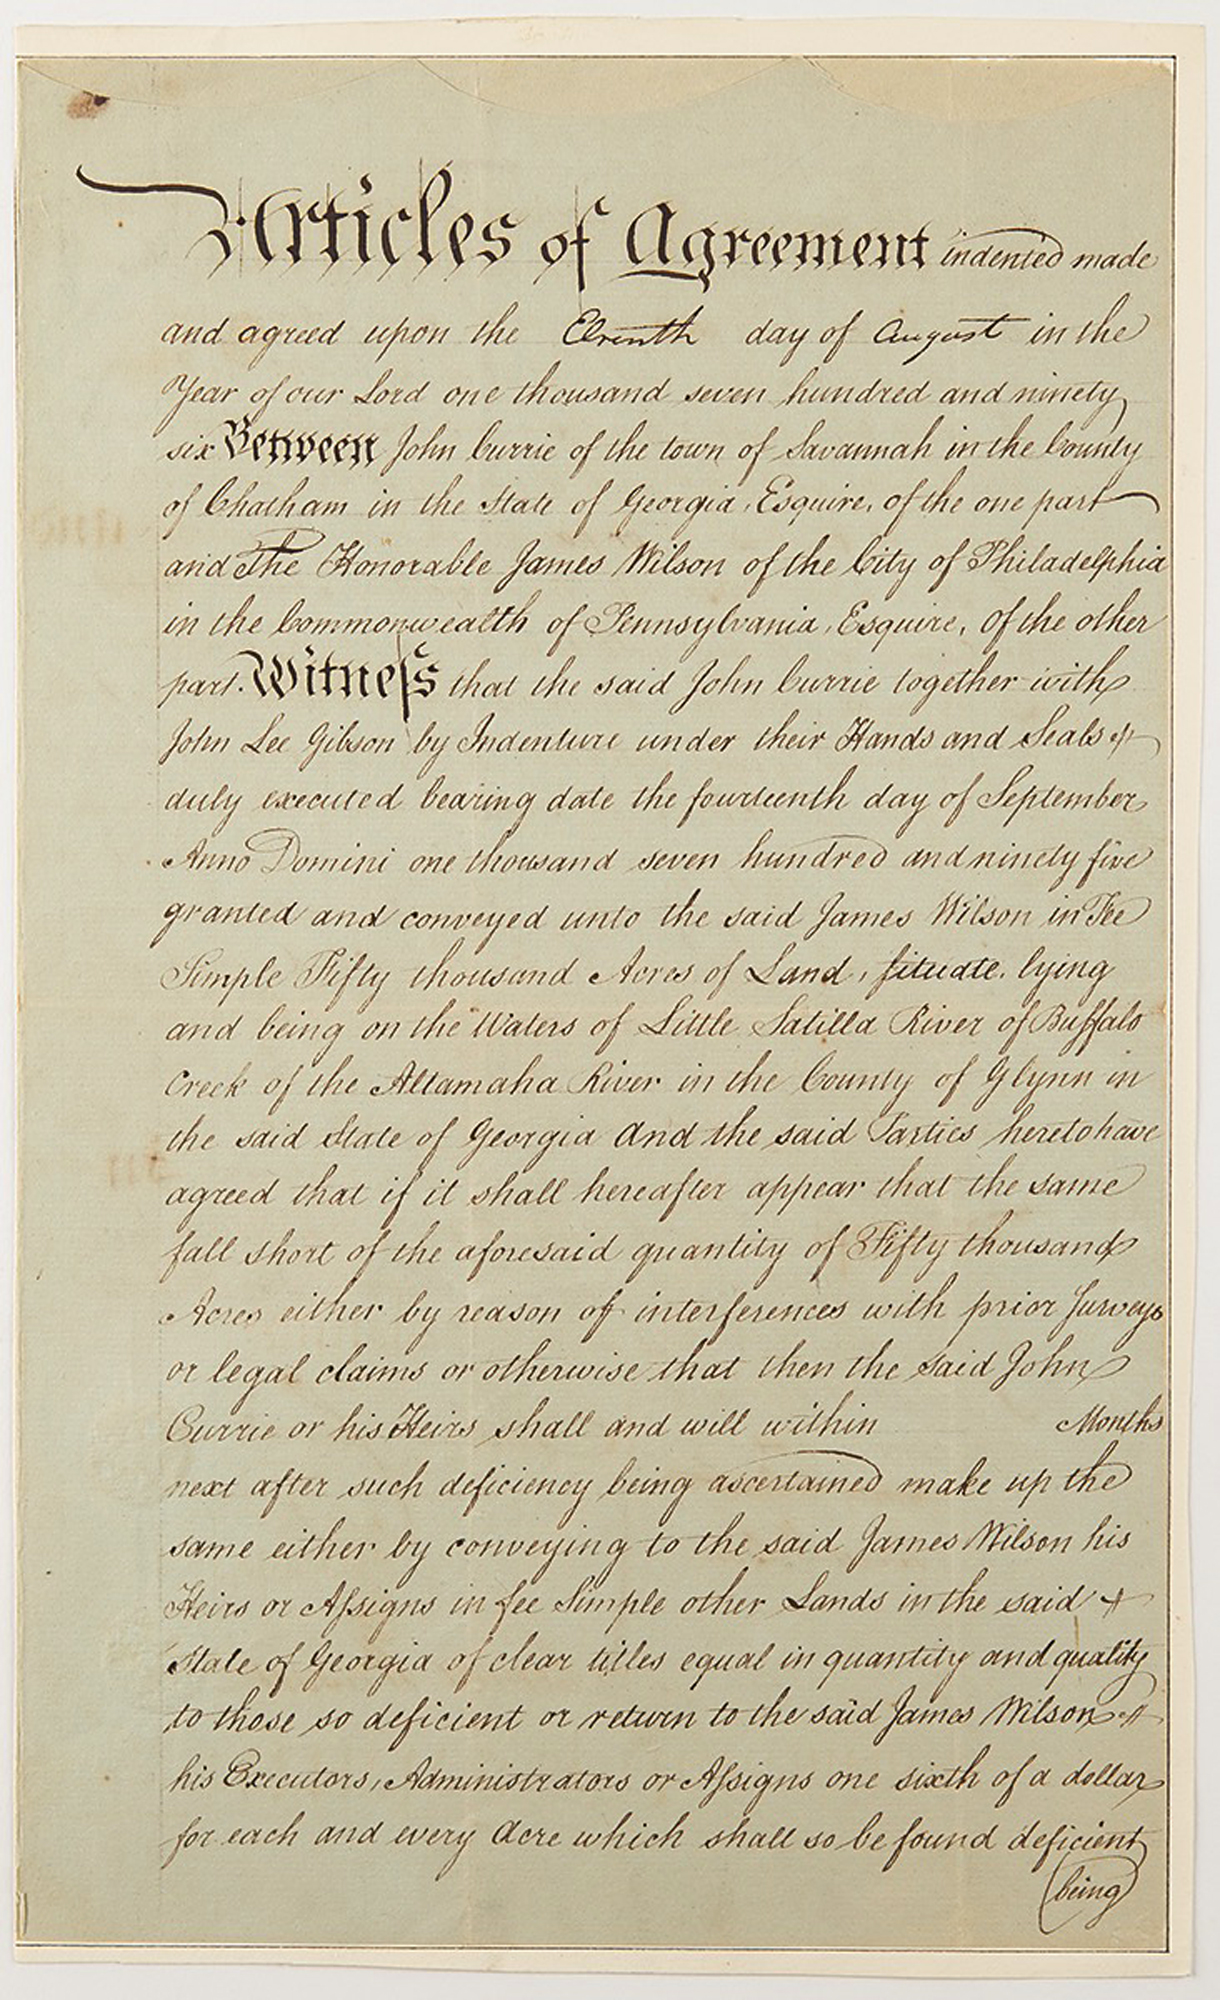 Articles of Agreement indented made
and agreed upon the Elevnth day of August in the
Year of our Lord one thousand seven hundred and ninety
six Between John Currie of the town of Savannah in the County
of Chatham in the State of Georgia, Esquire, of the one part
and The Honorable James Wilson of the City of Philadelphia
in the Commonwealth of Pennsylvania, Esquire, Of the other
part. Witneſs that the said John Currie together with
John Lee Gibson by Indenture under their Hands and Seals
duly executed bearing date the fourteenth day of September
Anno Domini one thousand seven hundred and ninety five
granted and conveyed unto the said James Wilson in Fee
Simple Fifty thousand Acres of Land, ſituate, lying
and being on the Waters of Little Satilla River of Buffalo
Creek of the Altamaha River in the County of Glynn in
the said State of Georgia And the said Parties hereto have
agreed that if it shall hereafter appear that the same
fall short of the aforesaid quantity of Fifty thousand
Acres either by reason of interferences with prior Surveys
or legal claims or otherwise that then the said John
Currie or his Heirs shall and will within Months
next after such deficiency being ascertained make up the
same either by conveying to the said James Wilson his
Heirs or Aſsigns in fee Simple other Lands in the said
State of Georgia of clear titles equal in quantity and quality
to those so deficient or return to the said James Wilson
his Executors, Administrators or Aſsigns one sixth of a dollar
for each and every Acre which shall so be found deficient
being